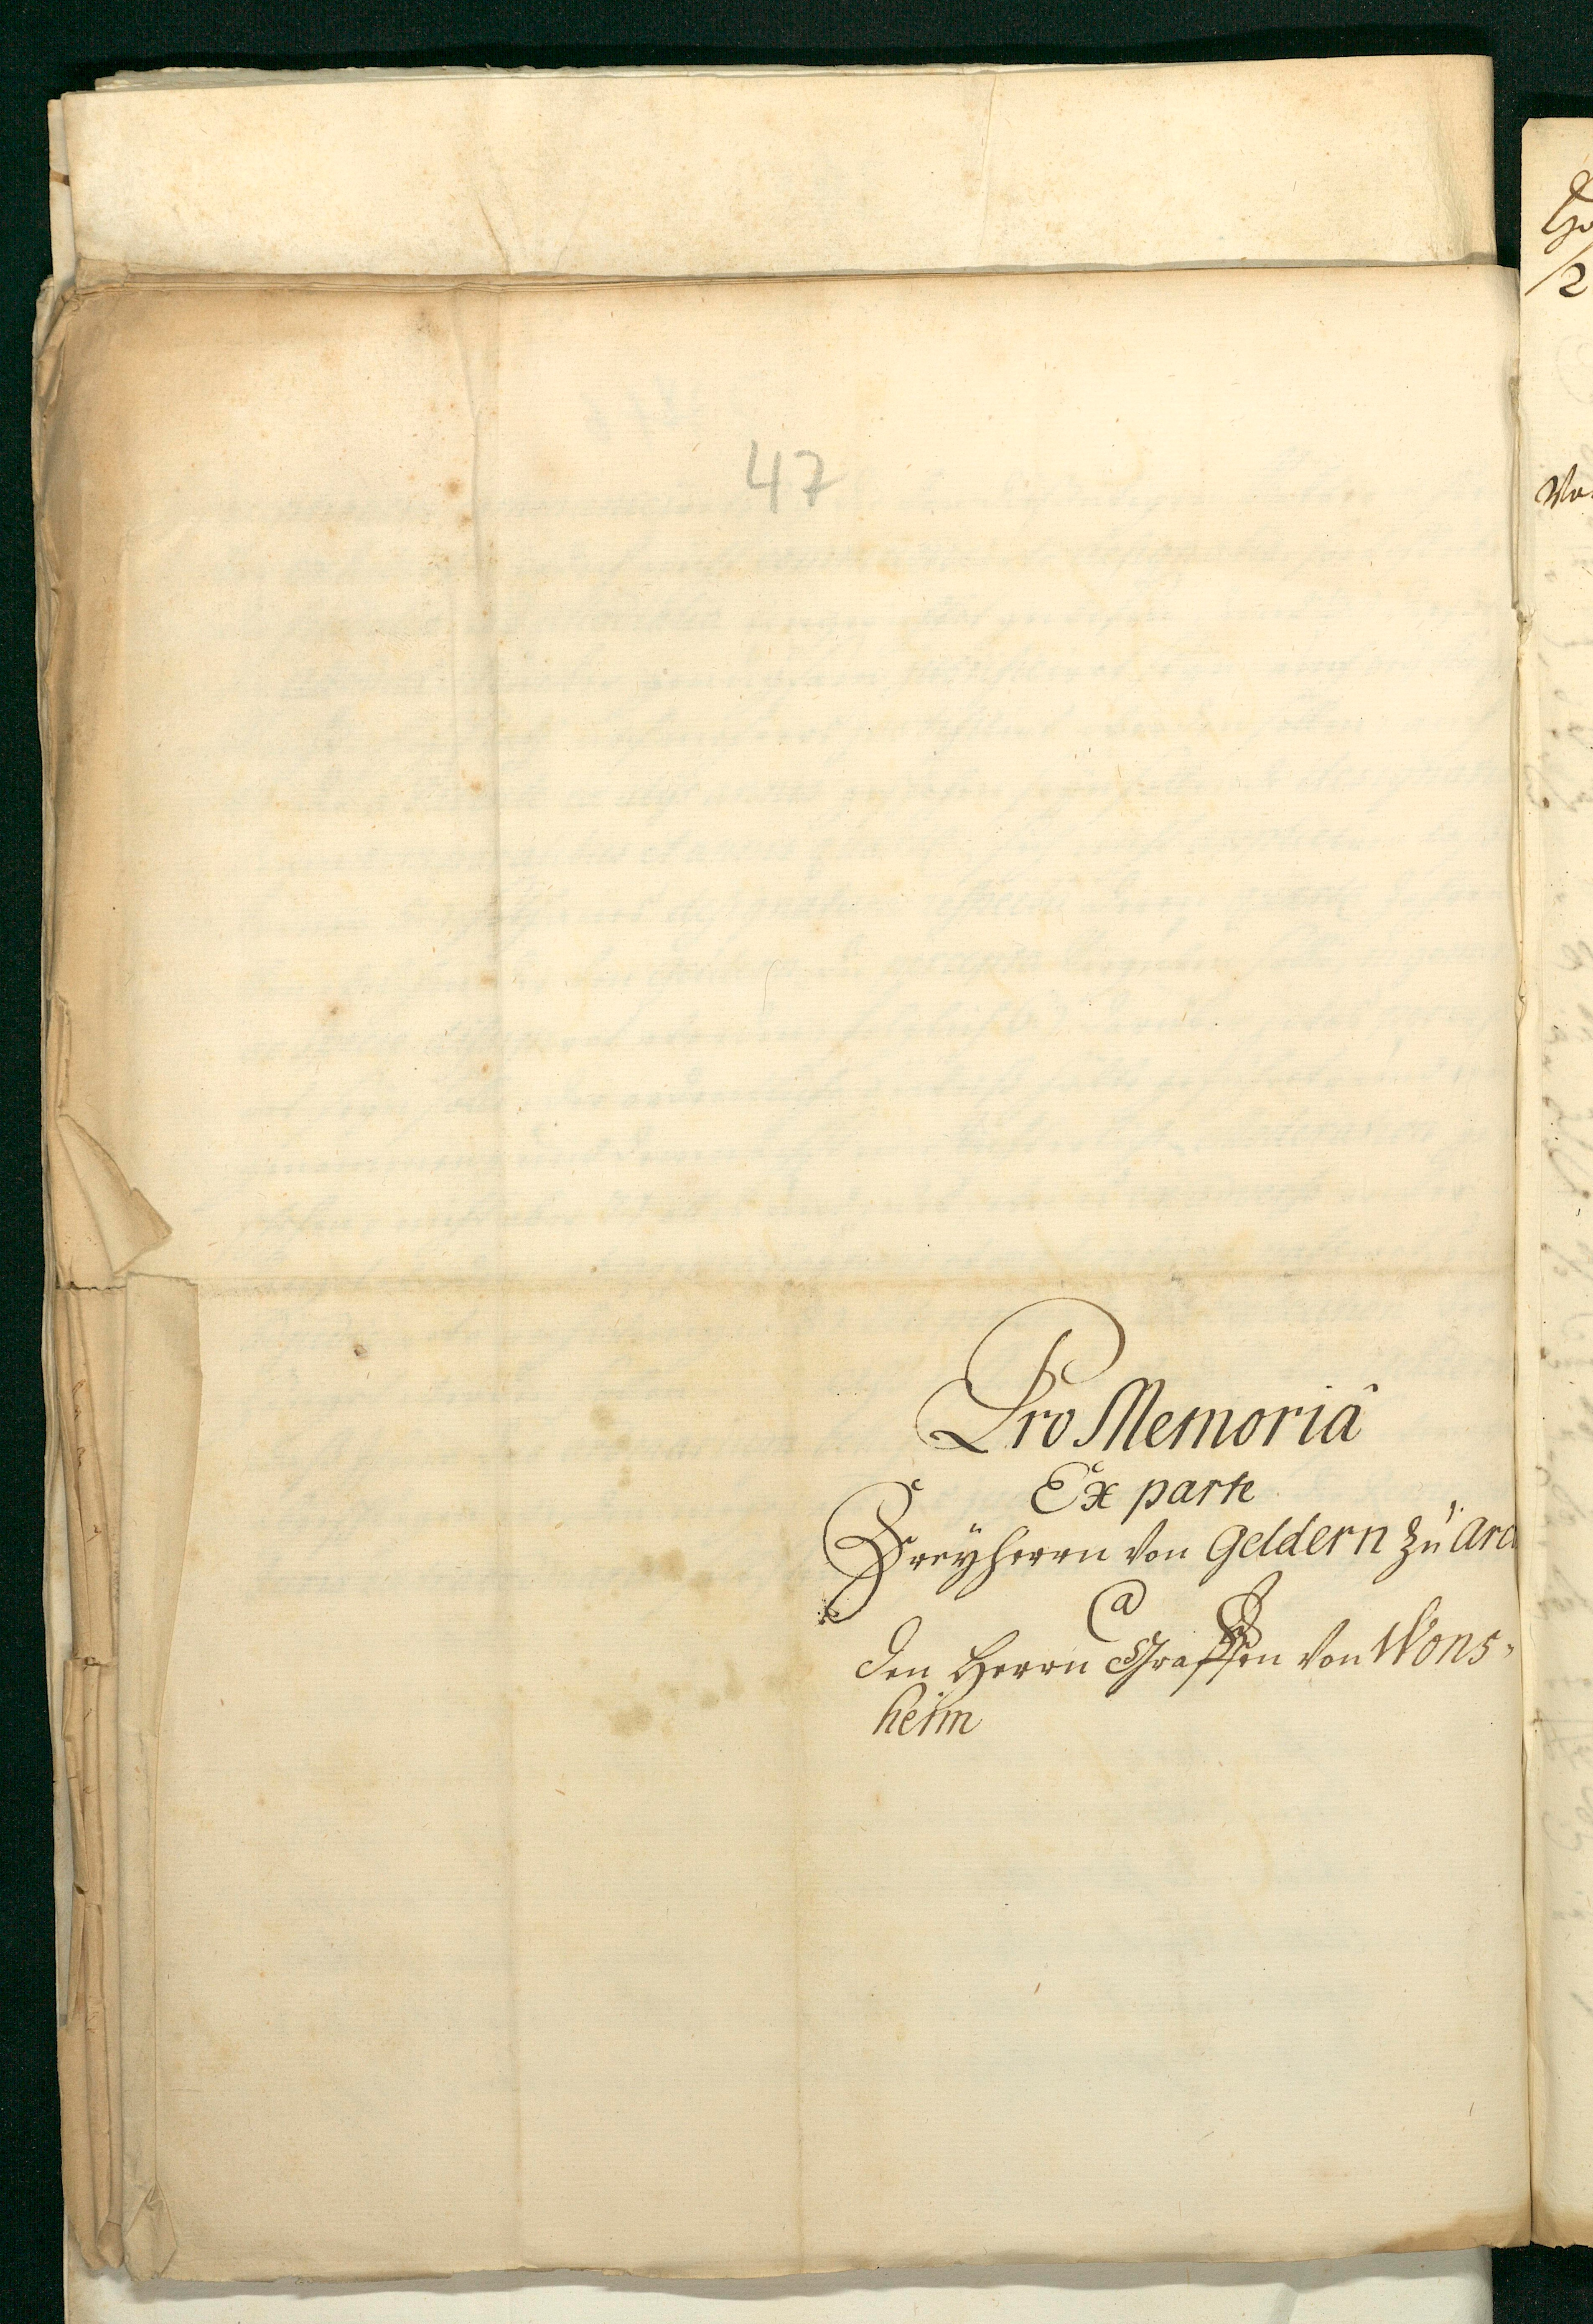 47
Pro Memoriâ
Ex parte
Freÿherrn von Geldern zu Arc
Ca
den Herrn Graffen von Wons-
heim